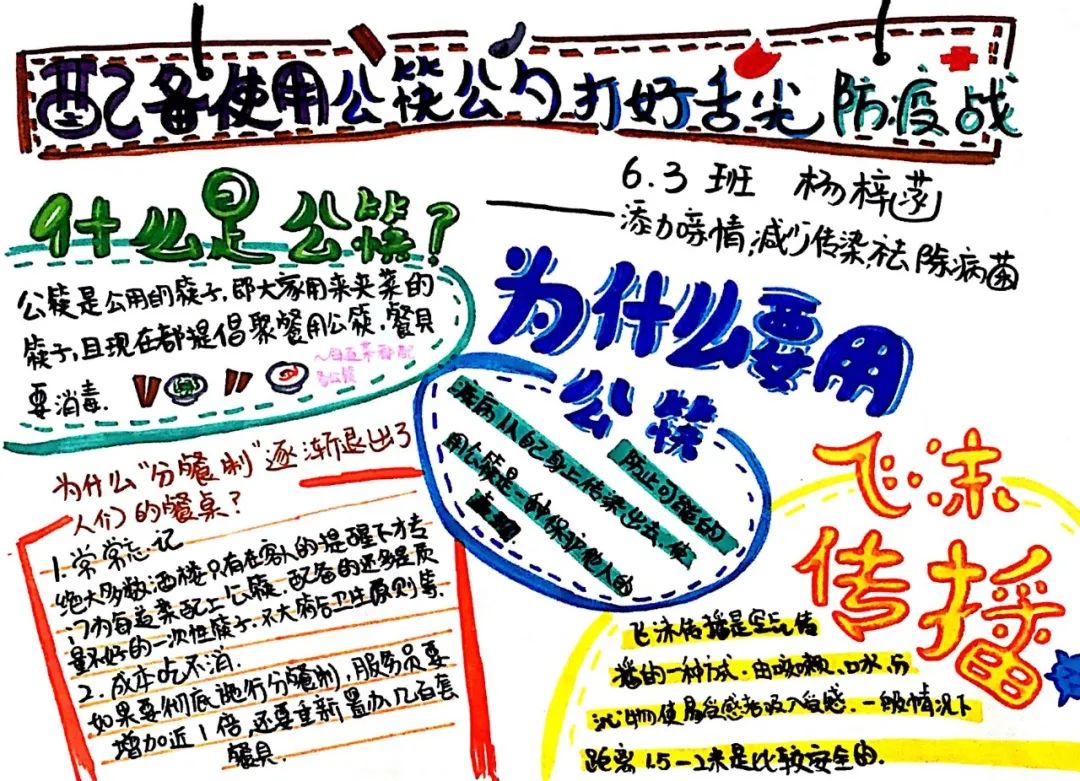 配备使用公筷公勺打好舌尖防疫战
6.3班 杨梓菡
添加亲情,减少传染,祛除病菌
什么是公筷?
公筷是公用的筷子,即大家用来夹菜的
筷子,且现在都提倡聚餐用公筷,餐具
要消毒.
~每道菜都配
着公筷
为什么要用
公筷
防止可能的
疾病从自己身上传染出去,
用公筷是一种保护他人的
为什么"分餐制"逐渐退出了
人们的餐桌?
1.常常忘记
绝大多数酒楼只有在客人的提醒下才专
门为每道菜配上公筷.配备的还多是质
量不好的一次性筷子.不大符合卫生原则等.
2.成本吃不消.
如果要彻底施行分餐制,服务员要
增加近1倍,还要重新置办几百套
餐具.
飞沫
传播
飞沫传播是空气传
播的一种方式.由咳嗽.口水.分
泌物使易受感者吸入受感.一般情况下
距离1.5-2米是比较安全的.